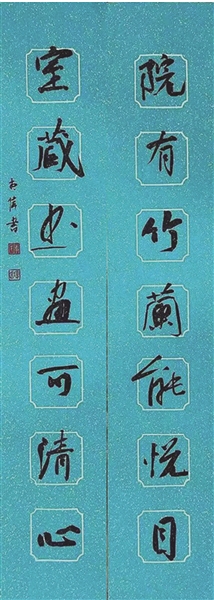 院有竹蘭能悦目
室藏书畫可清心
书